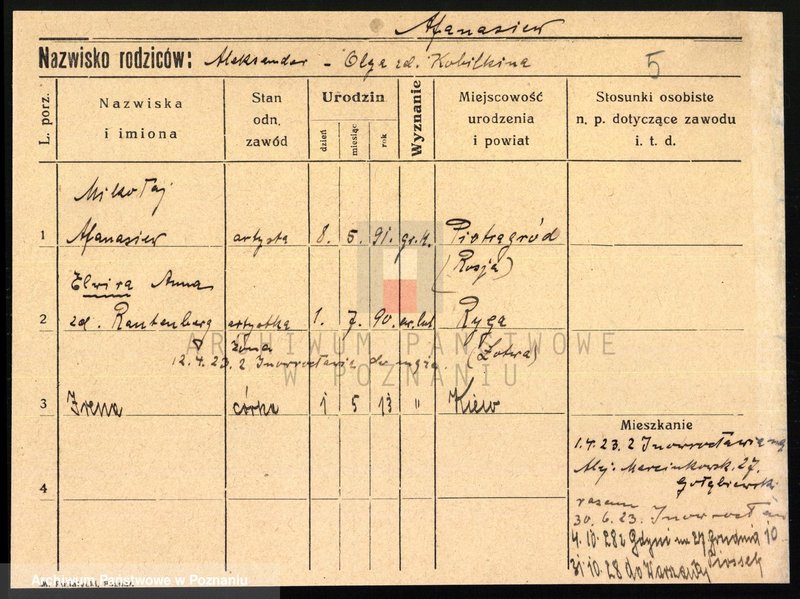 Afanasiew
Nazwisko rodziców: Aleksander - Olga zd. Kobilkina
5
L. porz.
Nazwiska i imiona
Stan odn. zawód
Urodzin
dzień
miesiąc
rok
Wyznanie
Miejscowość urodzenia i powiat
Stosunki osobiste n. p. dotyczące zawodu i. t. d.
Mikołaj
1 Afanasiew artysta 8. 5. 91. gr. k. Piotrogród
(Rosja)
Elwira Anna
2 zd. Rautenberg artystka 1. 7. 90. ew. lut Ryga
żona (Łotwa)
12.4.23. z Inowrocławia do męża.
3 Irena córka 1 5 13 " Kiew
4
Mieszkanie
1.4.23. z Inowrocławia na
Alej. Marcinkowsk. 27.
Gołębiewski
razem
30.6.23. Inowrocław
4.10.28 z Gdyni na 27 Grudnia 10
31.10.28 do Warszawy
ARCHIWUM PAŃSTWOWE
W POZNANIU
Archiwum Państwowe w Poznaniu